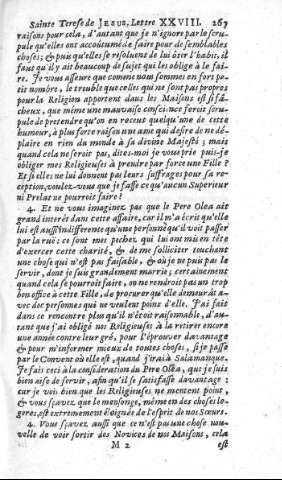 Sainte Terese de JESUS, Lettre XXVIII. 267
raisons pour cela, d'autant que je n'ignore par le scru-
pule qu'elles ont accoûtumé de faire pour de semblables
choses; & puis qu'elles se resolurent de lui ôter l'habit, il
faut qu'il y ait beaucoup de sujet qui les oblige à le fai-
re. Je vous asseure que comme nous sommes en fort pe-
tit nombre, le trouble que celles qui ne sont pas propres
pour la Religion apportent dans les Maisons est si fâ-
cheux, que même une mauvaise consciēnce feroit scru-
pule de pretendre qu'on en receut quelqu'une de cette
humeur, à plus forte raison une ame qui desire de ne dé-
plaire en rien du monde à sa divine Majesté; mais
quand cela ne seroit pas, dites-moi je vous prie puis-je
obliger mes Religieuses à prendre par force une Fille ?
Et si elles ne lui donnent pas leurs suffrages pour sa re-
ception, voulez-vous que je fasse ce qu'aucun Superieur
ni Prelat ne pourroit faire ?
4. Et ne vous imaginez pas que le Pere Olea ait
grand interêt dans cette affaire, car il m'a écrit qu'elle
lui est aussi indifferente qu'une personne qu'il voit passer
par la ruë : ce sont mes pechez qui lui ont mis en tête
d'exercer cette charité, & de me solliciter touchant
une chose qui n'est pas faisable, & où je ne puis pas le
servir, dont je suis grandement marrie; certainement
quand cela se pourroit faire, on ne rendroit pas un trop
bon office à cette Fille, de procurer qu'elle demeurât a-
vec des personnes qui ne veulent point d'elle. J'ai fait
dans ce rencontre plus qu'il n'étoit raisonnable, d'au-
tant que j'ai obligé nos Religieuses à la retirer encore
une année contre leur gré, pour l'éprouver davantage
& pour m'informer mieux de toutes choses, si je passe
par le Convent où elle est, quand j'irai à Salamanque.
Je fais ceci à la consideration du Pere Olea, que je suis
bien aise de servir, afin qu'il se satisfasse davantage :
car je voi bien que les Religieuses ne mentent point,
& vous sçavez que le mensonge, même en des choses le-
geres, est extremement éloigné de l'esprit de nos Sœurs.
4. Vous sçavez aussi que ce n'est pas une chose nou-
velle de voir sortir des Novices de nos Maisons, cela
M 2 est